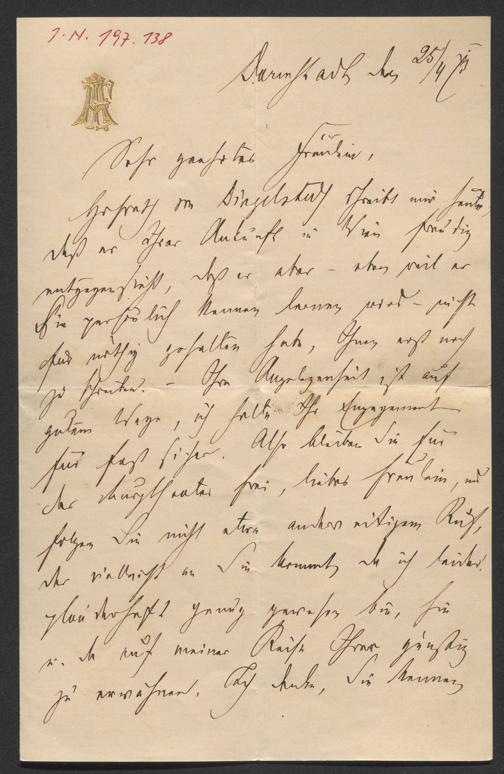 I.N. 197.138
Darmstadt den 25/4
Sehr geehrtes Fräulein,
Hofrath von Dingelstedt schreibt mir heute,
daß er Ihrer Ankunft in Wien freudig
entgegensieht, daß er aber – eben weil er
Sie persönlich kennen lernen wird – nicht
für nöthig gehalten habe, Ihnen erst noch
zu schreiben. – Ihre Angelegenheit ist auf
gutem Wege, ich halte Ihr Engagement
für fast sicher. Also bleiben Sie für
das Burgtheater frei, liebes Fräulein, und
folgen Sie nicht etwa anderweitigem Ruf,
der vielleicht an Sie kommt, da ich leider
plauderhaft genug gewesen bin, hie
u. da auf meiner Reise Ihrer günstig
zu erwähnen. Ich denke, Sie kennen